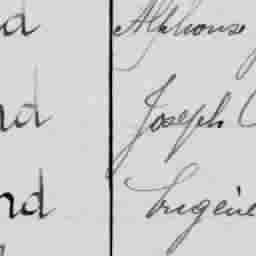 d Alphonse
nd Joseph
nd Eugène